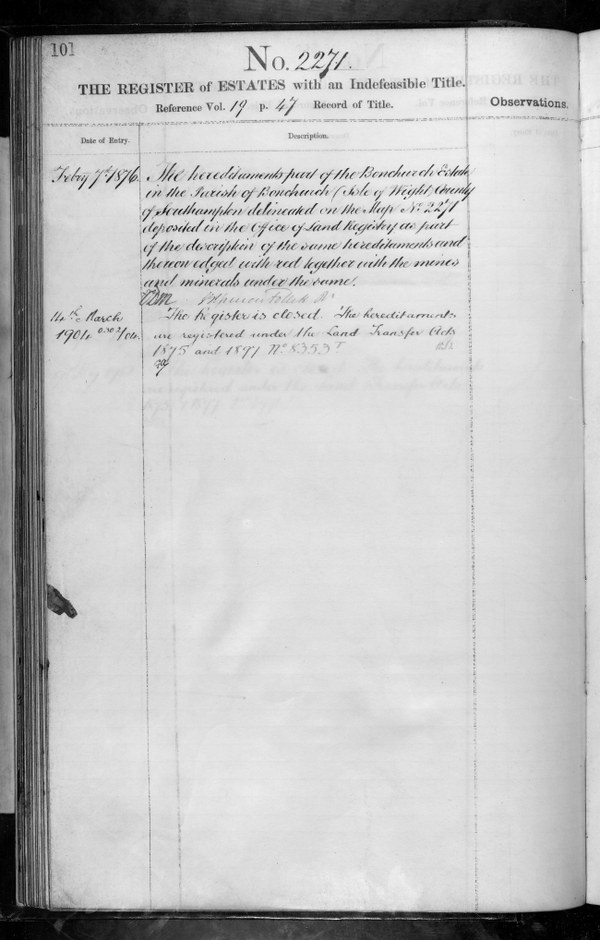 101
No. 2271.
THE REGISTER of ESTATES with an Indefeasible Title.
Reference Vol. 19 p. 47 Record of Title.
Observations.
Date of Entry.
Description.
Feby 7th 1876.
All hereditaments part of the Bonchurch Estate
in the Parish of Bonchurch (Isle of Wight) County
of Southampton delineated on the Map No. 2271
deposited in the Office of Land Registry as part
of the description of the same hereditaments and
thereon edged with red together with the mines
and minerals under the same.
14th March
1904 0302/04.
The Register is closed. The hereditaments
are registered under the Land Transfer Acts
1875 and 1897 No. 8353